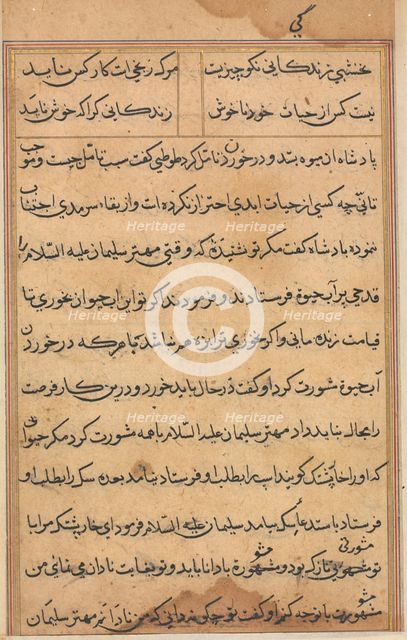 نخشبی زندگانی نکو چیزیست
مرگ زیخیات کار کس ناید
نیست کس از حیات خود ناخوش
زندگانی کرا که خوش ناید
پادشاه آن میوه بستد و در خوردن تامل کرد طوطی گفت سبب تامل چیست و موجب
تانی چه کسی از حیات ابدی احتراز نکرده است و از بقاء سرمدی اجتناب
ننموده پادشاه گفت مگر تو نشنیده که وقتی مهتر سلیمان علیه السلام را
قدحی پر آب حیوة فرستادند و فرمودند اگر تو این آب حیوان بخوری تا
قیامت زنده مانی و اگر نخوری ترا بزه هم نباشد کجا هر که در خوردن
آب حیوة مشورت کرد او گفت در حال باید خورد و درین کار فرصت
را مجال نباید داد مهتر سلیمان علیه السلام با همه مشورت کرد مگر حیوانی
که او را خارپشتک گویند اسپ را بطلب او فرستاد نیامد بعده سک را بطلب او
فرستاد با ستدعای سک بیامد سلیمان علیه السلام فرمود ای خارپشتک مرا با
تو مشورتی نازک بود و مشورة با دانا باید و تو بغایت نادان می نمائی من
مشورت با تو چه کنم او گفت تو چگونه دانی که من نادانم مهتر سلیمان
Heritage
Heritage
Heritage
Heritage